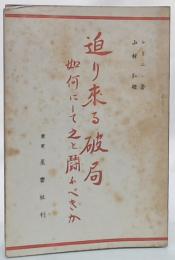 レーニン著
山村弘 譯
迫り來る破局
如何にして之と鬪ふべきか
東京 星雲社刊